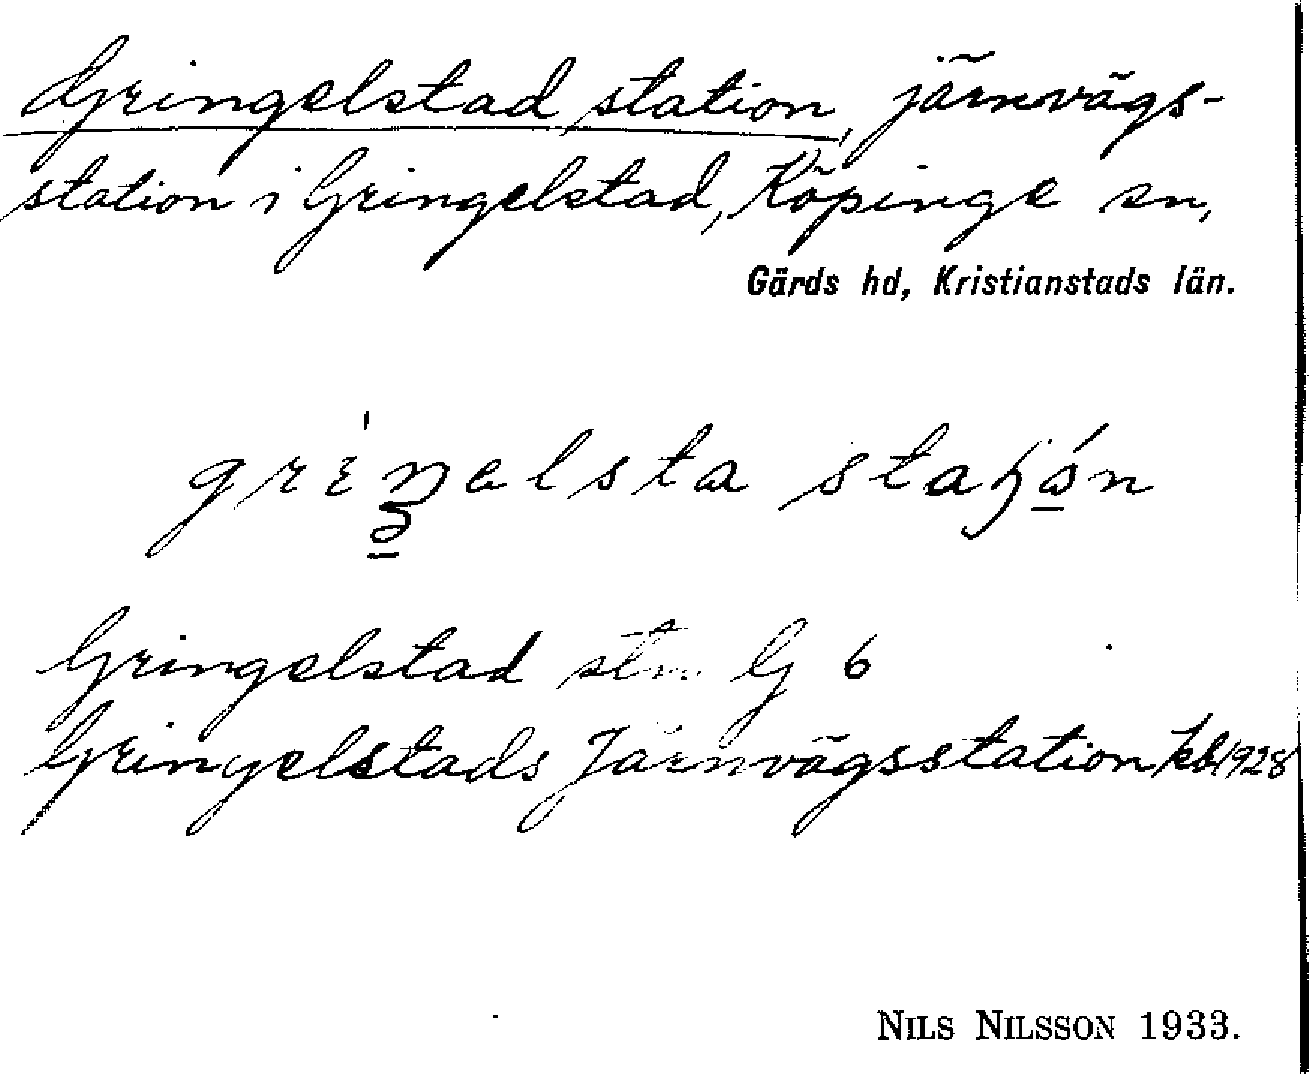 Gringelstad station, järnvägs-
station i Gringelstad, Köpinge sn,
Gärds hd, Kristianstads län.
Gringelstad stn G 6
Gringelstads Järnvägsstation kb 1928
NILS NILSSON 1933.